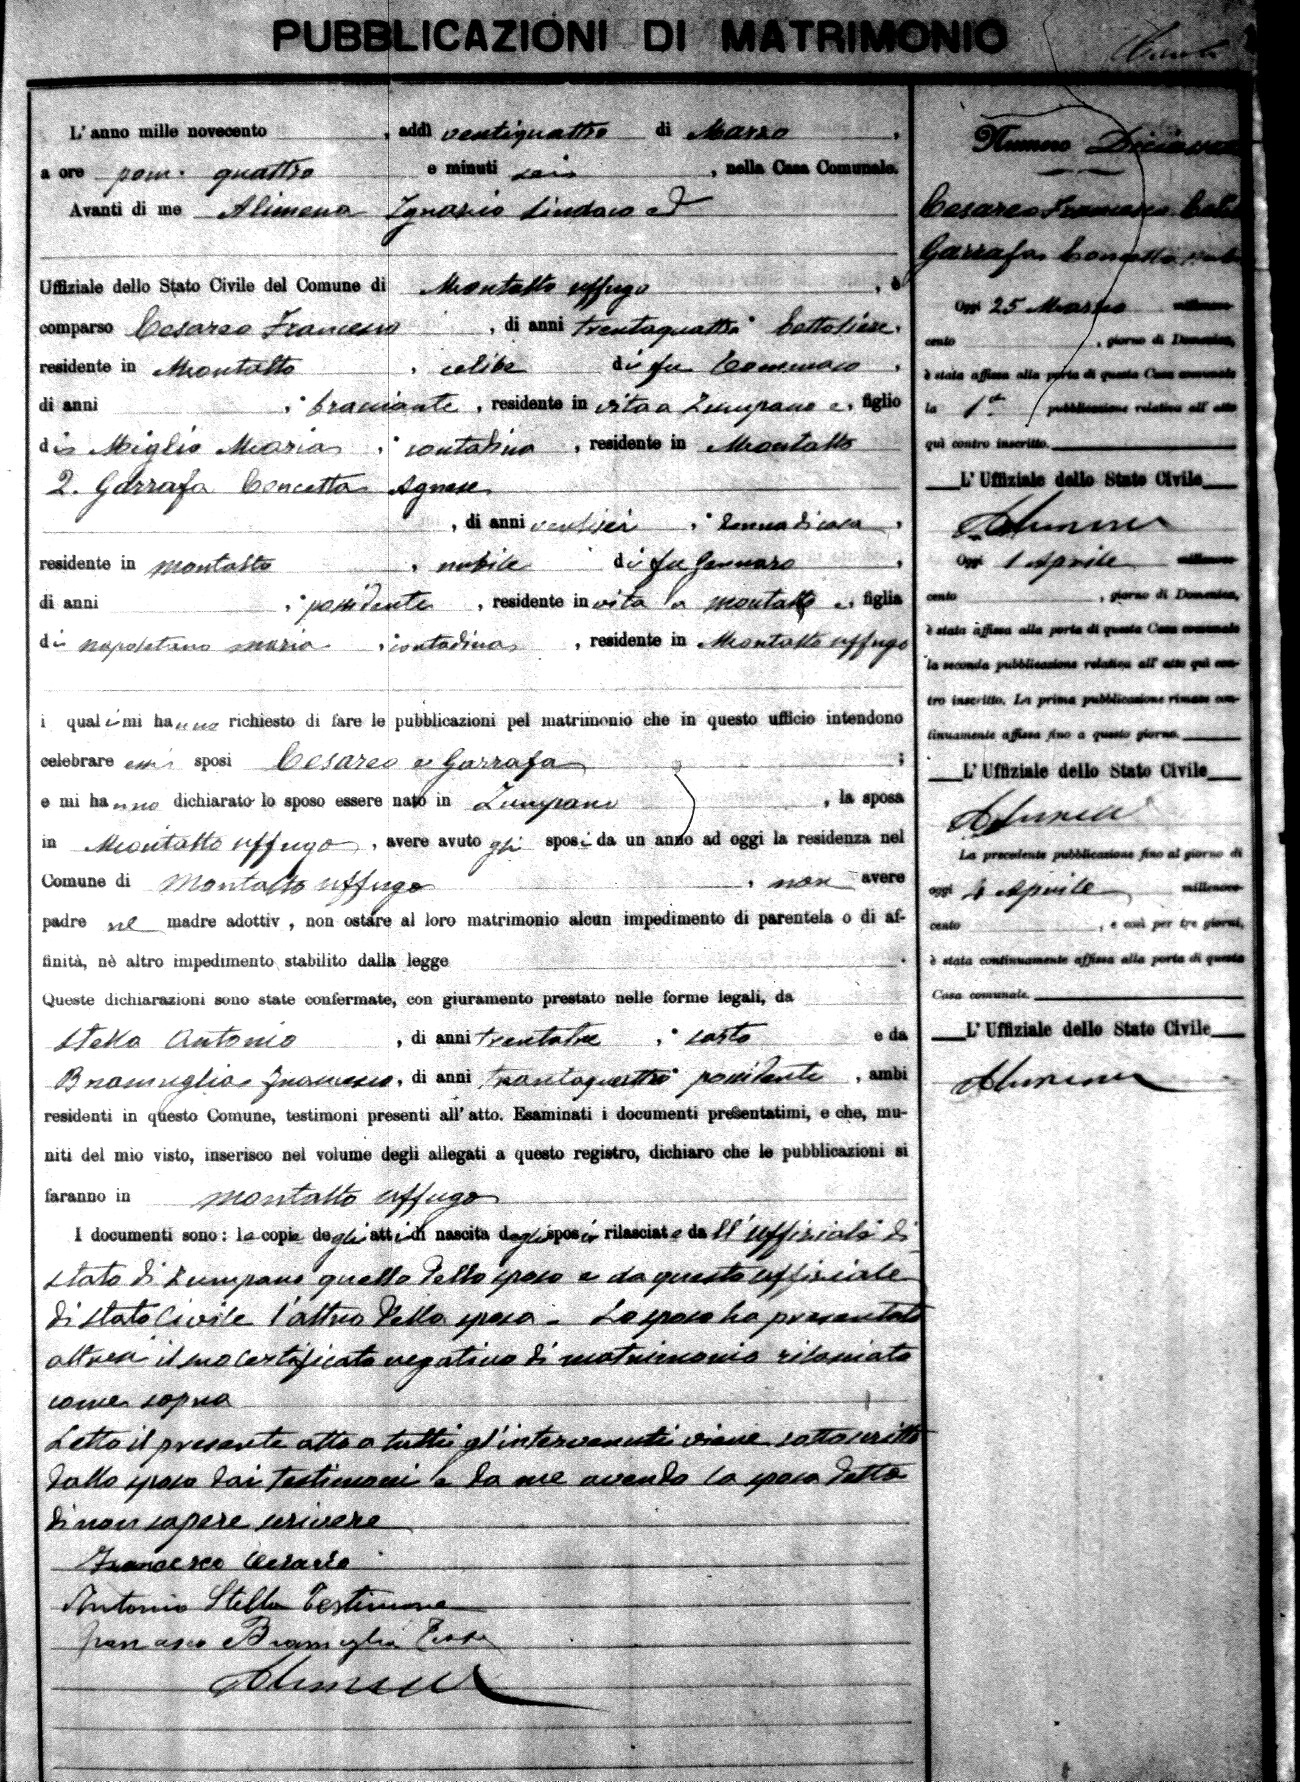 PUBBLICAZIONI DI MATRIMONIO
L'anno mille novecento , addì ventiquattro di Marzo ,
a ore pom. quattro e minuti seis , nella Casa Comunale.
Avanti di me Alimena Ignazio Sindaco ed
Uffiziale dello Stato Civile del Comune di Montalto uffugo , è
comparso Cesareo Francesco , di anni trentaquattro Bottoliere ,
residente in Montalto , celibe di fu Tommaso ,
di anni , bracciante , residente in vita a Zumpano e , figlio
di Miglio Maria , contadina , residente in Montalto
2. Garrafa Concetta Agnese
, di anni ventisei , donna di casa ,
residente in Montalto , nubile di fu Gennaro ,
di anni , possidente , residente in vita a Montalto e , figlia
di Napoletano Maria , contadina , residente in Montalto uffugo
i quali mi hanno richiesto di fare le pubblicazioni pel matrimonio che in questo ufficio intendono
celebrare essi sposi Cesareo e Garrafa ;
e mi hanno dichiarato lo sposo essere nato in Zumpano , la sposa
in Montalto uffugo , avere avuto gli sposi da un anno ad oggi la residenza nel
Comune di Montalto uffugo , non avere
padre nè madre adottiv , non ostare al loro matrimonio alcun impedimento di parentela o di af-
finità, nè altro impedimento stabilito dalla legge .
Queste dichiarazioni sono state confermate, con giuramento prestato nelle forme legali, da
Stella Antonio , di anni trentatre , sarto e da
Bramuglia Francesco , di anni trentaquattro possidente , ambi
residenti in questo Comune, testimoni presenti all'atto. Esaminati i documenti presentatimi, e che, mu-
niti del mio visto, inserisco nel volume degli allegati a questo registro, dichiaro che le pubblicazioni si
faranno in Montalto uffugo
I documenti sono: le copie degli atti di nascita degli sposi rilasciate dall'uffiziale di
stato di Zumpano quello dello sposo e da questo uffiziale
di stato Civile l'altro della sposa - Lo sposo ha presentato
altresì il suo certificato negativo di matrimonio rilasciato
come sopra
Letto il presente atto a tutti gl'intervenuti viene sottoscritto
dallo sposo dai testimoni e da me avendo la sposa detto
di non sapere scrivere
Francesco Cesareo
Antonio Stella Testimone
Francesco Bramuglia Teste
Alimena
Numero
Cesareo Francesco
Garrafa Concetta
Oggi 25 Marzo millenove-
cento , giorno di Domenica,
è stata affissa alla porta di questa Casa comunale
la 1a pubblicazione relativa all'atto
quì contro inscritto.
L'Uffiziale dello Stato Civile
Alimena
Oggi 1 Aprile millenove-
cento , giorno di Domenica,
è stata affissa alla porta di questa Casa comunale
la seconda pubblicazione relativa all'atto quì con-
tro inscritto. La prima pubblicazione rimase con-
tinuamente affissa fino a questo giorno.
L'Uffiziale dello Stato Civile
Alimena
La precedente pubblicazione fino al giorno di
oggi 4 Aprile millenove-
cento , e così per tre giorni,
è stata continuamente affissa alla porta di questa
Casa comunale.
L'Uffiziale dello Stato Civile
Alimena